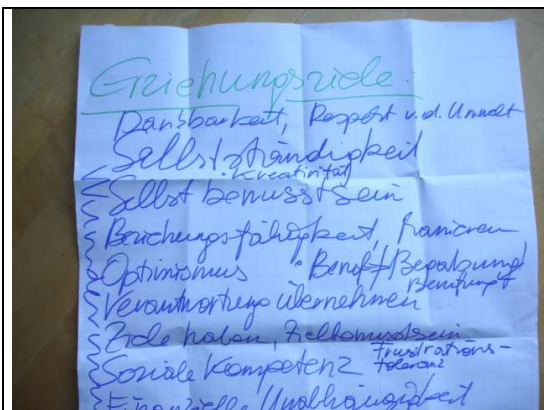 Erziehungsziele:
Dankbarkeit, Respekt v. d. Umwelt
Selbstständigkeit
• Kreativität
Selbstbewusstsein
Beziehungsfähigkeit,
Optimismus • Beruf/Begabung/
Berufung
Verantwortung übernehmen
Ziele haben, Zielbewusstsein
Soziale Kompetenz Frustrations-
toleranz
Finanzielle Unabhängigkeit